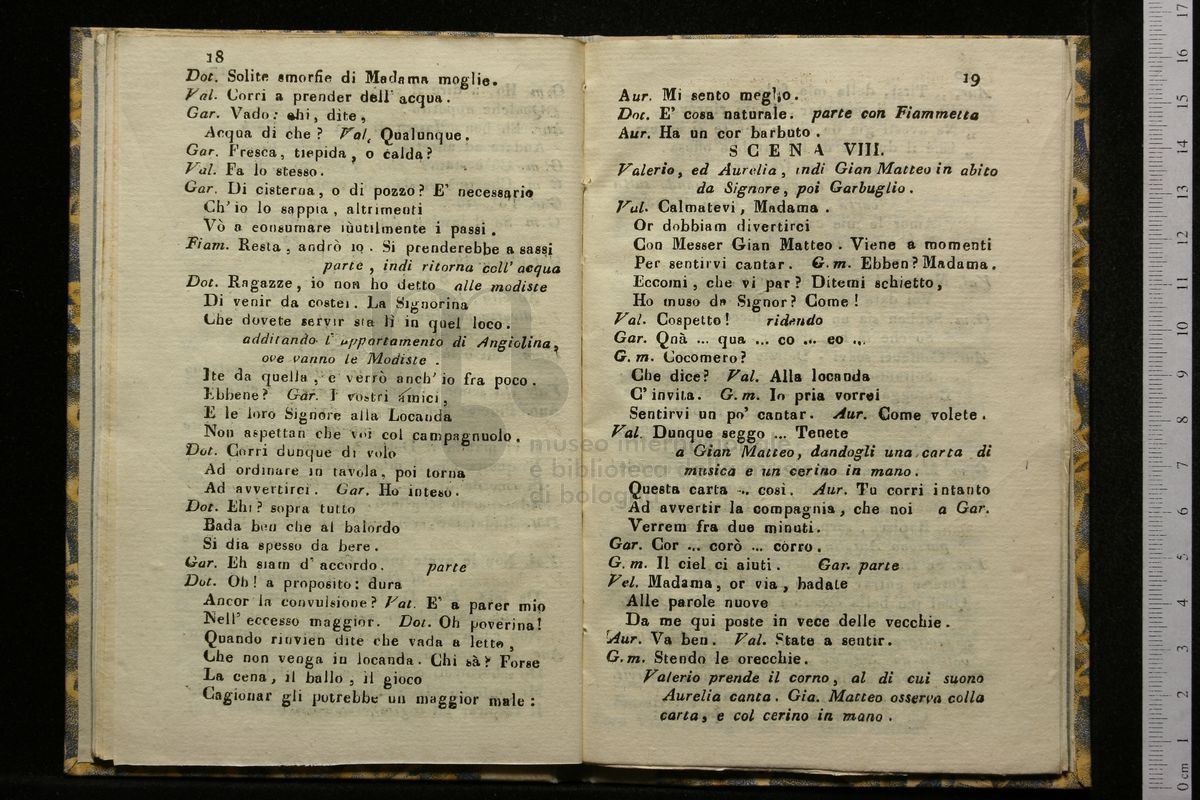 18
Dot. Solite smorfie di Madama moglie.
Val. Corri a prender dell' acqua.
Gar. Vado: ehi, dite,
Acqua di che? Val. Qualunque.
Gar. Fresca, tiepida, o calda?
Val. Fa lo stesso.
Gar. Di cisterna, o di pozzo? E' necessario
Ch' io lo sappia, altrimenti
Vò a consumare inutilmente i passi.
Fiam. Resta, andrò io. Si prenderebbe a sassi
parte, indi ritorna coll' acqua
Dot. Ragazze, io non ho detto alle modiste
Di venir da costei. La Signorina
Che dovete servir sta lì in quel loco.
additando l' appartamento di Angiolina,
ove vanno le Modiste.
Ite da quella, e verrò anch' io fra poco.
Ebbene? Gar. I vostri amici,
E le loro Signore alla Locanda
Non aspettan che voi col campagnuolo.
Dot. Corri dunque di volo
Ad ordinare in tavola, poi torna
Ad avvertirci. Gar. Ho inteso.
Dot. Ehi? sopra tutto
Bada ben che al balordo
Si dia spesso da bere.
Gar. Eh siam d' accordo. parte
Dot. Oh! a proposito: dura
Ancor la convulsione? Val. E' a parer mio
Nell' eccesso maggior. Dot. Oh poverina!
Quando rinvien dite che vada a letto,
Che non venga in locanda. Chi sà? Forse
La cena, il ballo, il gioco
Cagionar gli potrebbe un maggior male:
19
Aur. Mi sento meglio.
Dot. E' cosa naturale. parte con Fiammetta
Aur. Ha un cor barbuto.
SCENA VIII.
Valerio, ed Aurelia, indi Gian Matteo in abito
da Signore, poi Garbuglio.
Val. Calmatevi, Madama.
Or dobbiam divertirci
Con Messer Gian Matteo. Viene a momenti
Per sentirvi cantar. G.m. Ebben? Madama.
Eccomi, che vi par? Ditemi schietto,
Ho muso da Signor? Come!
Val. Cospetto! ridendo
Gar. Quà ... qua ... co ... co ...
G.m. Cocomero?
Che dice? Val. Alla locanda
C' invita. G.m. Io pria vorrei
Sentirvi un po' cantar. Aur. Come volete.
Val. Dunque seggo ... Tenete
a Gian Matteo, dandogli una carta di
musica e un cerino in mano.
Questa carta ... così. Aur. Tu corri intanto
Ad avvertir la compagnia, che noi a Gar.
Verrem fra due minuti.
Gar. Cor ... corò ... corro.
G.m. Il ciel ci aiuti. Gar. parte
Vel. Madama, or via, badate
Alle parole nuove
Da me qui poste in vece delle vecchie.
Aur. Va ben. Val. State a sentir.
G.m. Stendo le orecchie.
Valerio prende il corno, al di cui suono
Aurelia canta. Gia. Matteo osserva colla
carta, e col cerino in mano.
museo internazionale
e biblioteca d
di bologna
0 cm 1 2 3 4 5 6 7 8 9 10 11 12 13 14 15 16 17